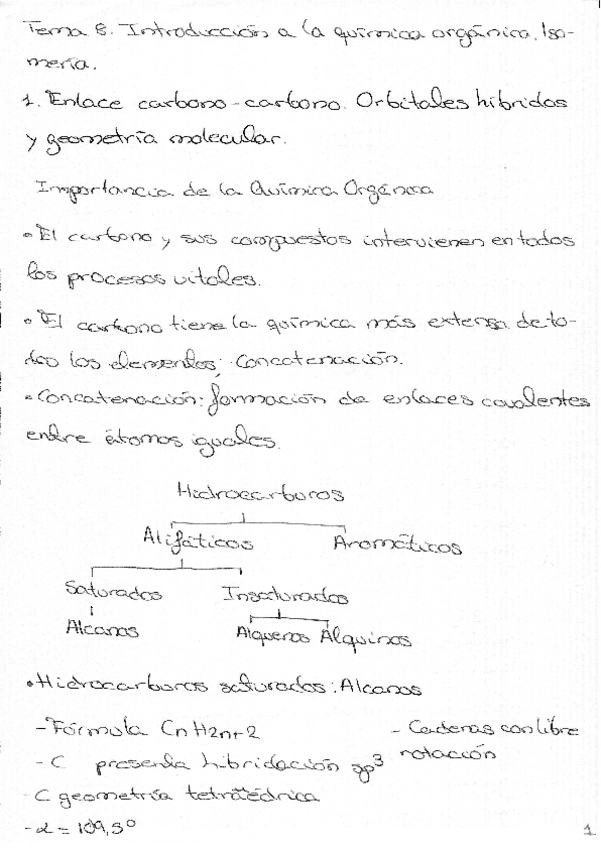 Tema 8. Introducción a la química orgánica. Iso-
mería.
1. Enlace carbono-carbono. Orbitales híbridos
y geometría molecular.
Importancia de la Química Orgánica
• El carbono y sus compuestos intervienen en todos
los procesos vitales.
• El carbono tiene la química más extensa de to-
dos los elementos; Concatenación.
• Concatenación: formación de enlaces covalentes
entre átomos iguales.
Hidrocarburos
Alifáticos Aromáticos
Saturados Insaturados
Alcanos Alquenos Alquinos
• Hidrocarburos saturados: Alcanos
- Fórmula CnH2n+2 - Cadenas con libre
rotación
- C presenta hibridación sp³
- C geometría tetraédrica
- α = 109,5°
1